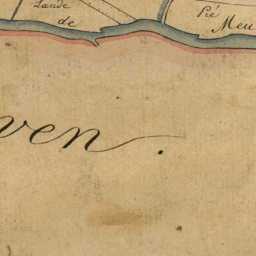 Lande
de
Pié
Meu
ven.